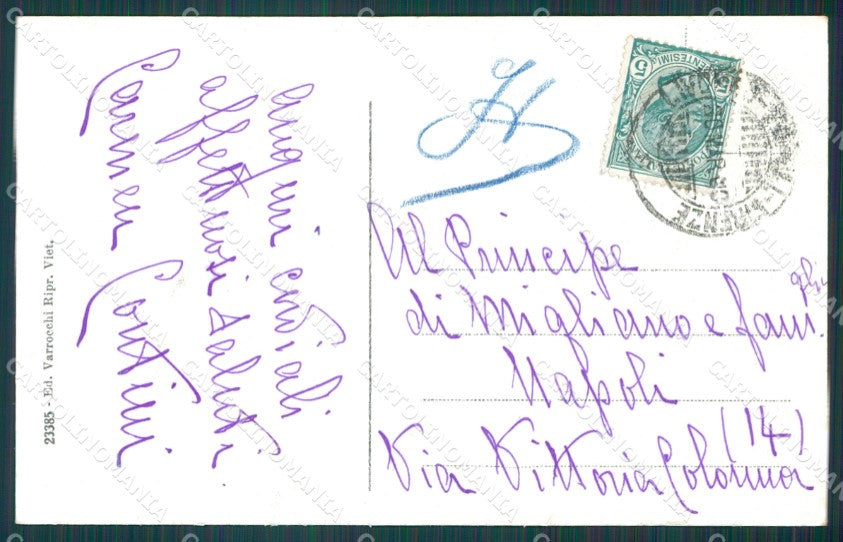 auguri cordiali
affettuosi saluti
Carmen Contini
23385 - Ed. Varrocchi Ripr. Viet.
H
CENTESIMI 5
FIRENZE
Al Principe
di Migliano e fami
glia
Napoli
(14)
Via Vittoria Colonna
CARTOLINOMANIA